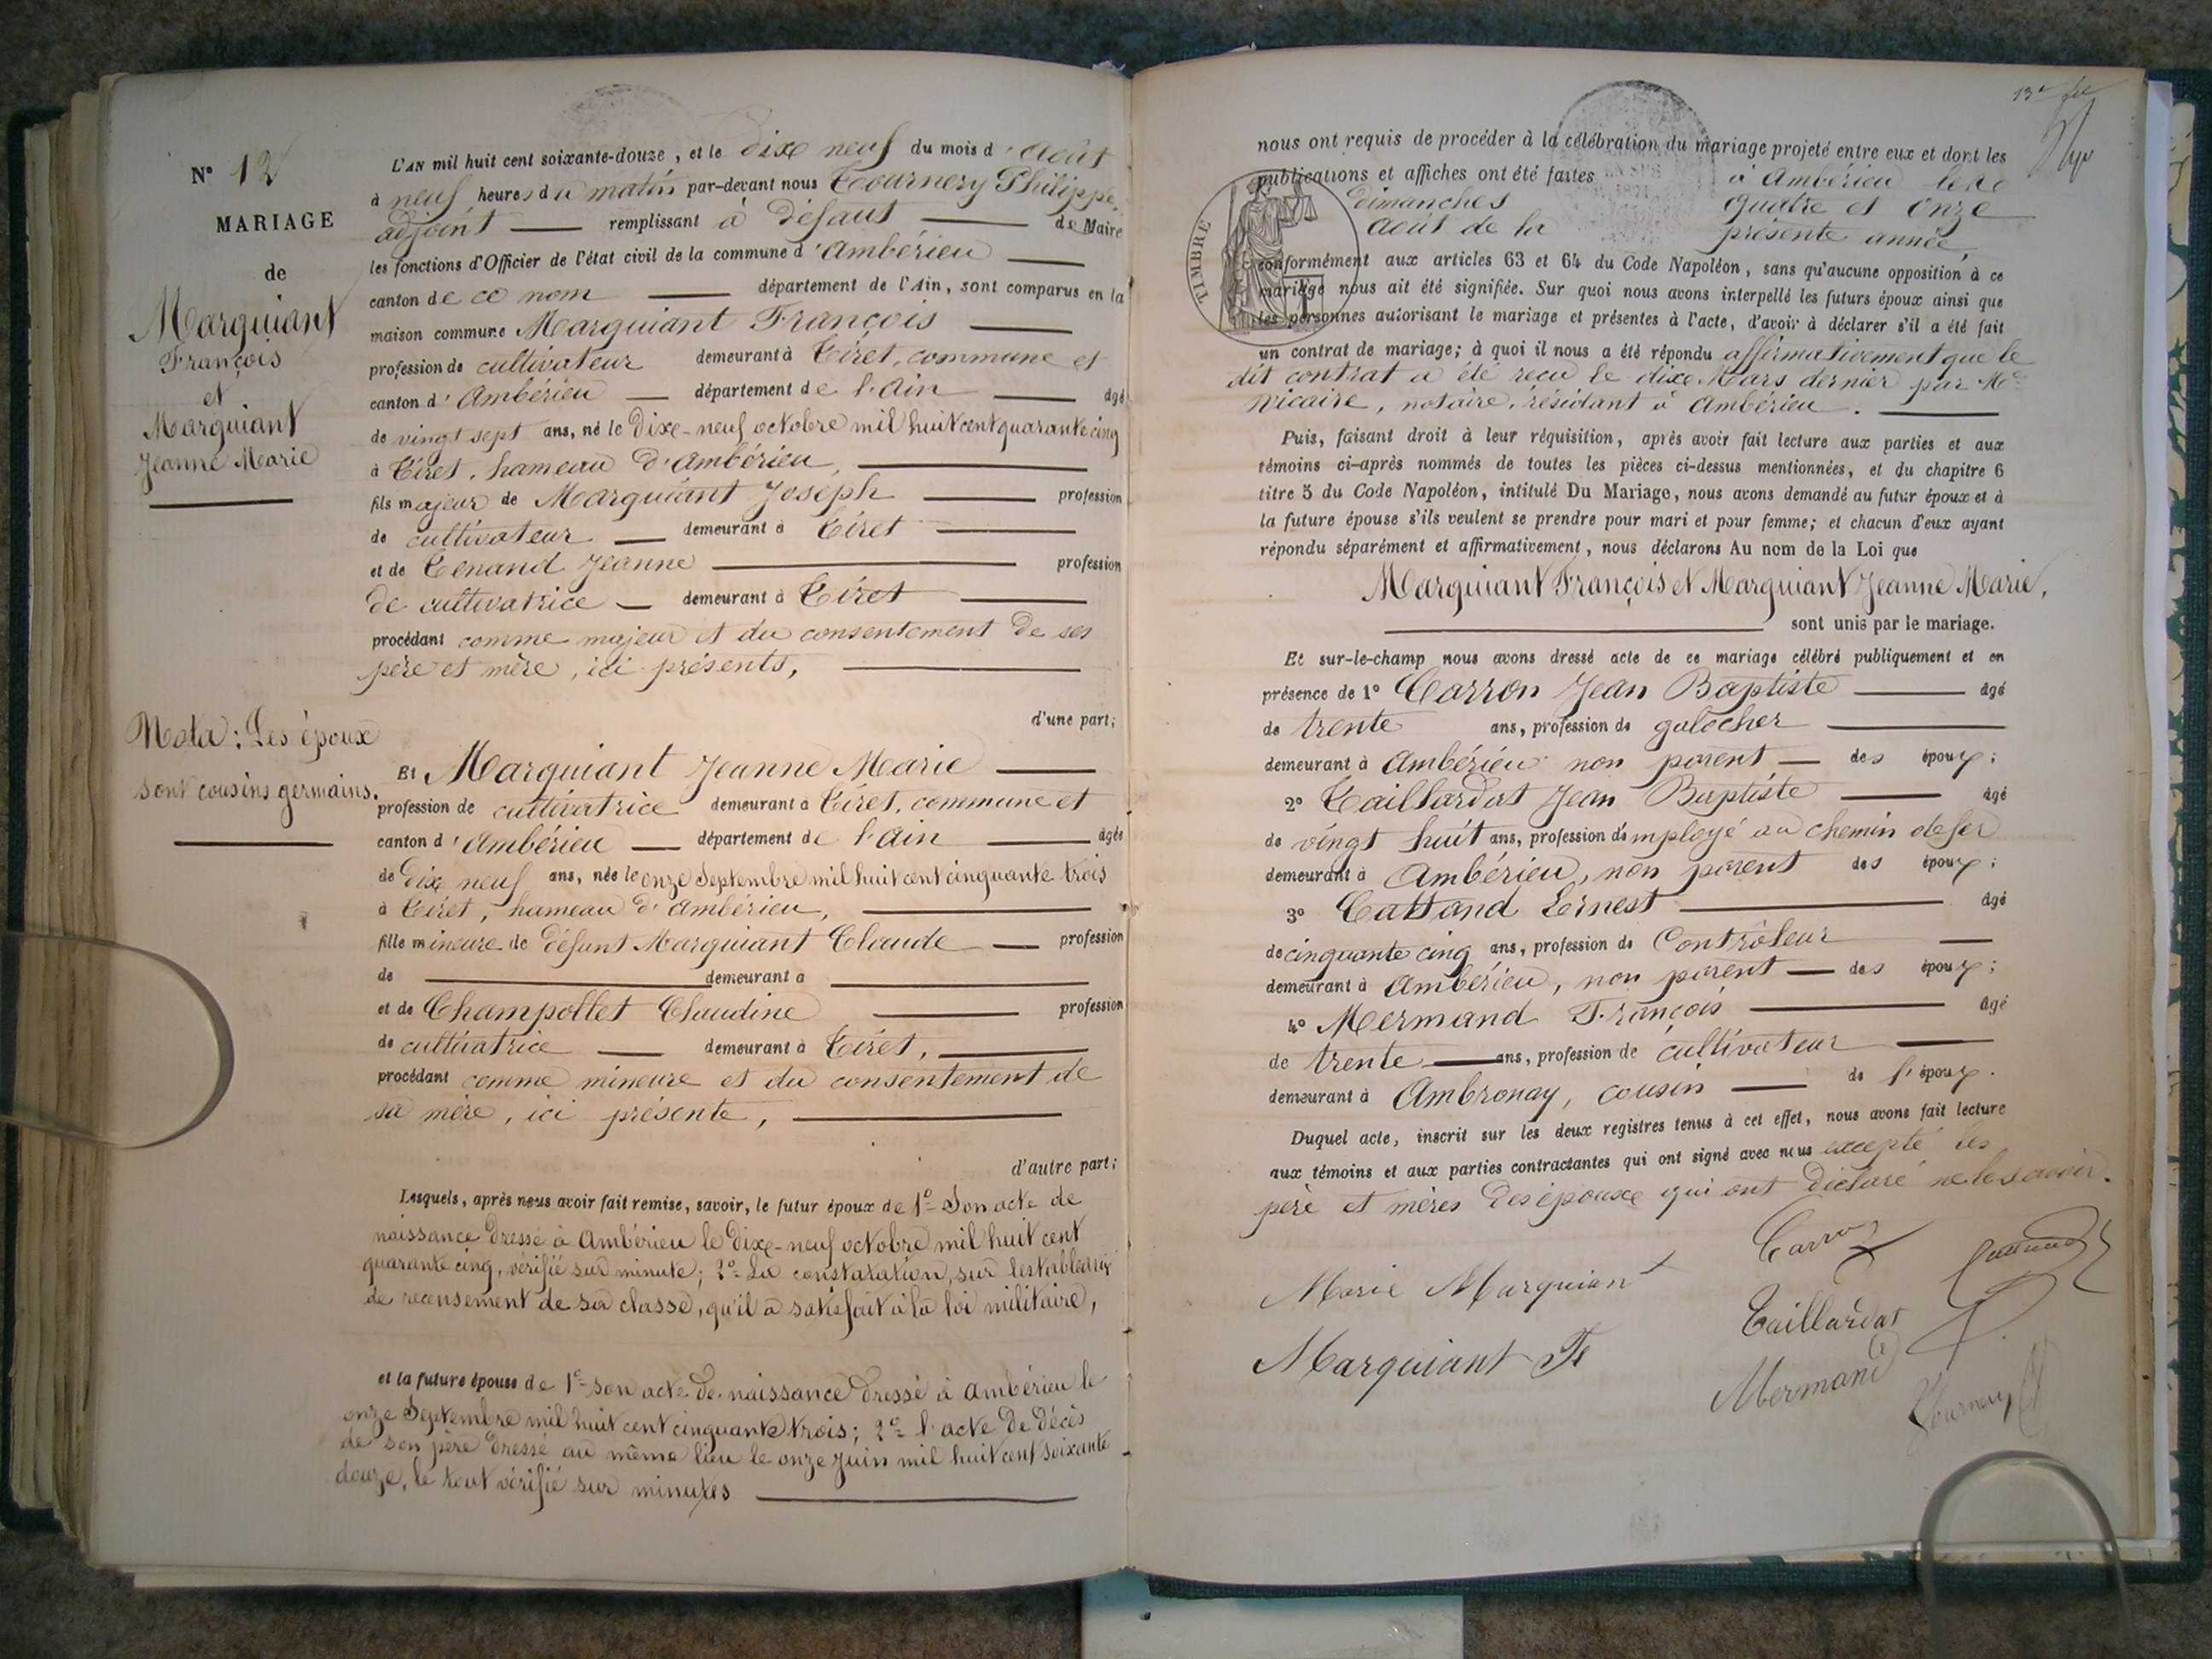 N° 12
MARIAGE
de
Marguiant
François
et
Marguiant
Jeanne Marie
Nota : Les époux
sont cousins germains.
L'AN mil huit cent soixante-douze, et le dixe neuf du mois d'Août
à neuf heures du matin par-devant nous Tournery Philippe,
adjoint remplissant à défaut de Maire
les fonctions d'Officier de l'état civil de la commune d'Ambérieu
canton de ce nom département de l'Ain, sont comparus en la
maison commune Marguiant François
profession de cultivateur demeurant à Tiret, commune et
canton d'Ambérieu département de l'Ain âgé
de vingt sept ans, né le dixe-neuf octobre mil huit cent quarante cinq
à Tiret, hameau d'Ambérieu,
fils majeur de Marguiant Joseph profession
de cultivateur demeurant à Tiret
et de Tenand Jeanne profession
de cultivatrice demeurant à Tiret
procédant comme majeur et du consentement de ses
père et mère, ici présents,
d'une part;
Et Marguiant Jeanne Marie
profession de cultivatrice demeurant à Tiret, commune et
canton d'Ambérieu département de l'Ain âgée
de dix neuf ans, née le onze Septembre mil huit cent cinquante trois
à Tiret, hameau d'Ambérieu,
fille mineure de défunt Marguiant Claude profession
de demeurant à
et de Champollet Claudine profession
de cultivatrice demeurant à Tiret,
procédant comme mineure et du consentement de
sa mère, ici présente,
d'autre part;
Lesquels, après nous avoir fait remise, savoir, le futur époux de 1° Son acte de
naissance dressé à Ambérieu le dixe-neuf octobre mil huit cent
quarante cinq, vérifié sur minute; 2° La constatation, sur les tableaux
de recensement de sa classe, qu'il a satisfait à la loi militaire,
et la future épouse de 1° son acte de naissance dressé à Ambérieu le
onze Septembre mil huit cent cinquante trois; 2° l'acte de décès
de son père dressé au même lieu le onze Juin mil huit cent soixante
douze, le tout vérifié sur minutes
nous ont requis de procéder à la célébration du mariage projeté entre eux et dont les
publications et affiches ont été faites à Ambérieu les
dimanches quatre et onze
Août de la présente année
TIMBRE
conformément aux articles 63 et 64 du Code Napoléon, sans qu'aucune opposition à ce
mariage nous ait été signifiée. Sur quoi nous avons interpellé les futurs époux ainsi que
les personnes autorisant le mariage et présentes à l'acte, d'avoir à déclarer s'il a été fait
un contrat de mariage; à quoi il nous a été répondu affirmativement que le
dit contrat a été reçu le dixe Mars dernier par Me
Vicaire, notaire, résidant à Ambérieu.
Puis, faisant droit à leur réquisition, après avoir fait lecture aux parties et aux
témoins ci-après nommés de toutes les pièces ci-dessus mentionnées, et du chapitre 6
titre 5 du Code Napoléon, intitulé Du Mariage, nous avons demandé au futur époux et à
la future épouse s'ils veulent se prendre pour mari et pour femme; et chacun d'eux ayant
répondu séparément et affirmativement, nous déclarons Au nom de la Loi que
Marguiant François et Marguiant Jeanne Marie,
sont unis par le mariage.
Et sur-le-champ nous avons dressé acte de ce mariage célébré publiquement et en
présence de 1° Carron Jean Baptiste âgé
de trente ans, profession de galocher
demeurant à Ambérieu non parent des époux;
2° Taillardat Jean Baptiste âgé
de vingt huit ans, profession d'employé au chemin de fer
demeurant à Ambérieu, non parent des époux;
3° Cattand Ernest âgé
de cinquante cinq ans, profession de Contrôleur
demeurant à Ambérieu, non parent des époux;
4° Mermand François âgé
de trente ans, profession de cultivateur
demeurant à Ambronay, cousin de l'époux.
Duquel acte, inscrit sur les deux registres tenus à cet effet, nous avons fait lecture
aux témoins et aux parties contractantes qui ont signé avec nous excepté les
père et mères des époux qui ont déclaré ne le savoir.
Carron
Marie Marguiant
Taillardat
Marguiant Fs
Mermand
Tournery